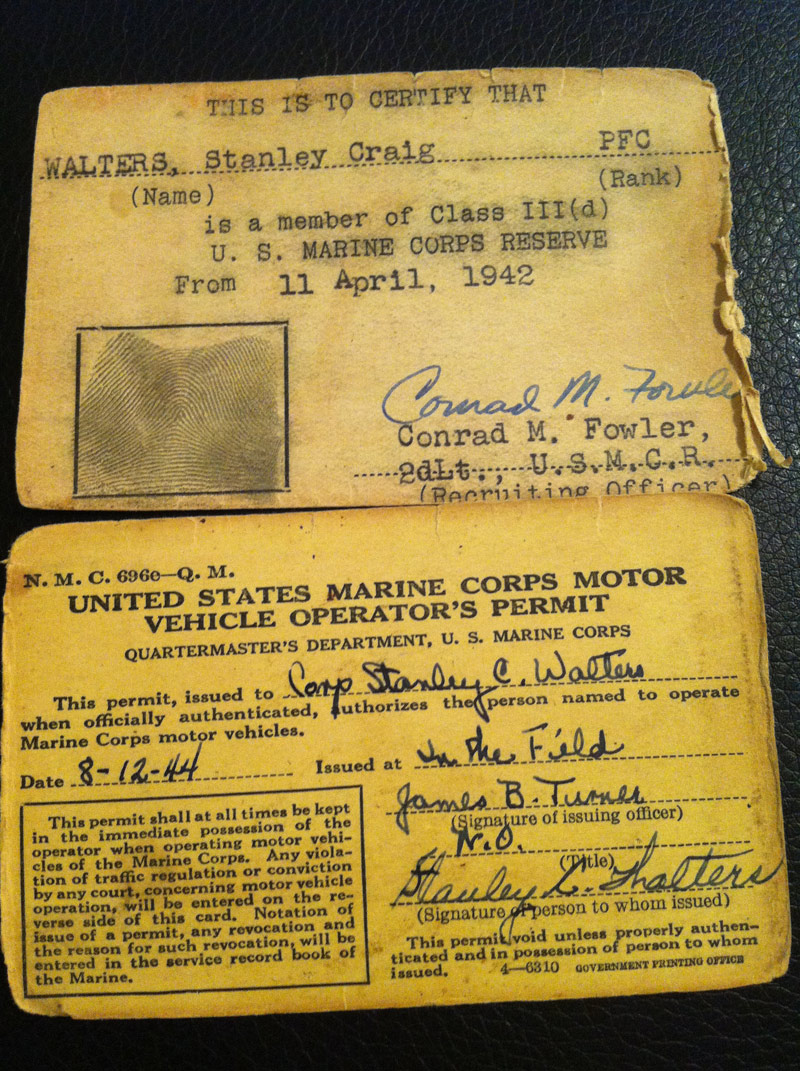 THIS IS TO CERTIFY THAT
WALTERS, Stanley Craig PFC
(Name) (Rank)
is a member of Class III(d)
U. S. MARINE CORPS RESERVE
From 11 April, 1942
Conrad M. Fowle
Conrad M. Fowler,
2dLt., U.S.M.C.R.
(Recruiting Officer)
N. M. C. 696e—Q. M.
UNITED STATES MARINE CORPS MOTOR
VEHICLE OPERATOR'S PERMIT
QUARTERMASTER'S DEPARTMENT, U. S. MARINE CORPS
This permit, issued to Corp Stanley C. Walters
when officially authenticated, authorizes the person named to operate
Marine Corps motor vehicles.
Date 8-12-44 Issued at In the Field
James B. Turner
(Signature of issuing officer)
(Title)
Stanley C. Walters
(Signature of person to whom issued)
This permit void unless properly authen-
ticated and in possession of person to whom
issued. 4—6310 GOVERNMENT PRINTING OFFICE
This permit shall at all times be kept
in the immediate possession of the
operator when operating motor vehi-
cles of the Marine Corps. Any viola-
tion of traffic regulation or conviction
by any court, concerning motor vehicle
operation, will be entered on the re-
verse side of this card. Notation of
issue of a permit, any revocation and
the reason for such revocation, will be
entered in the service record book of
the Marine.